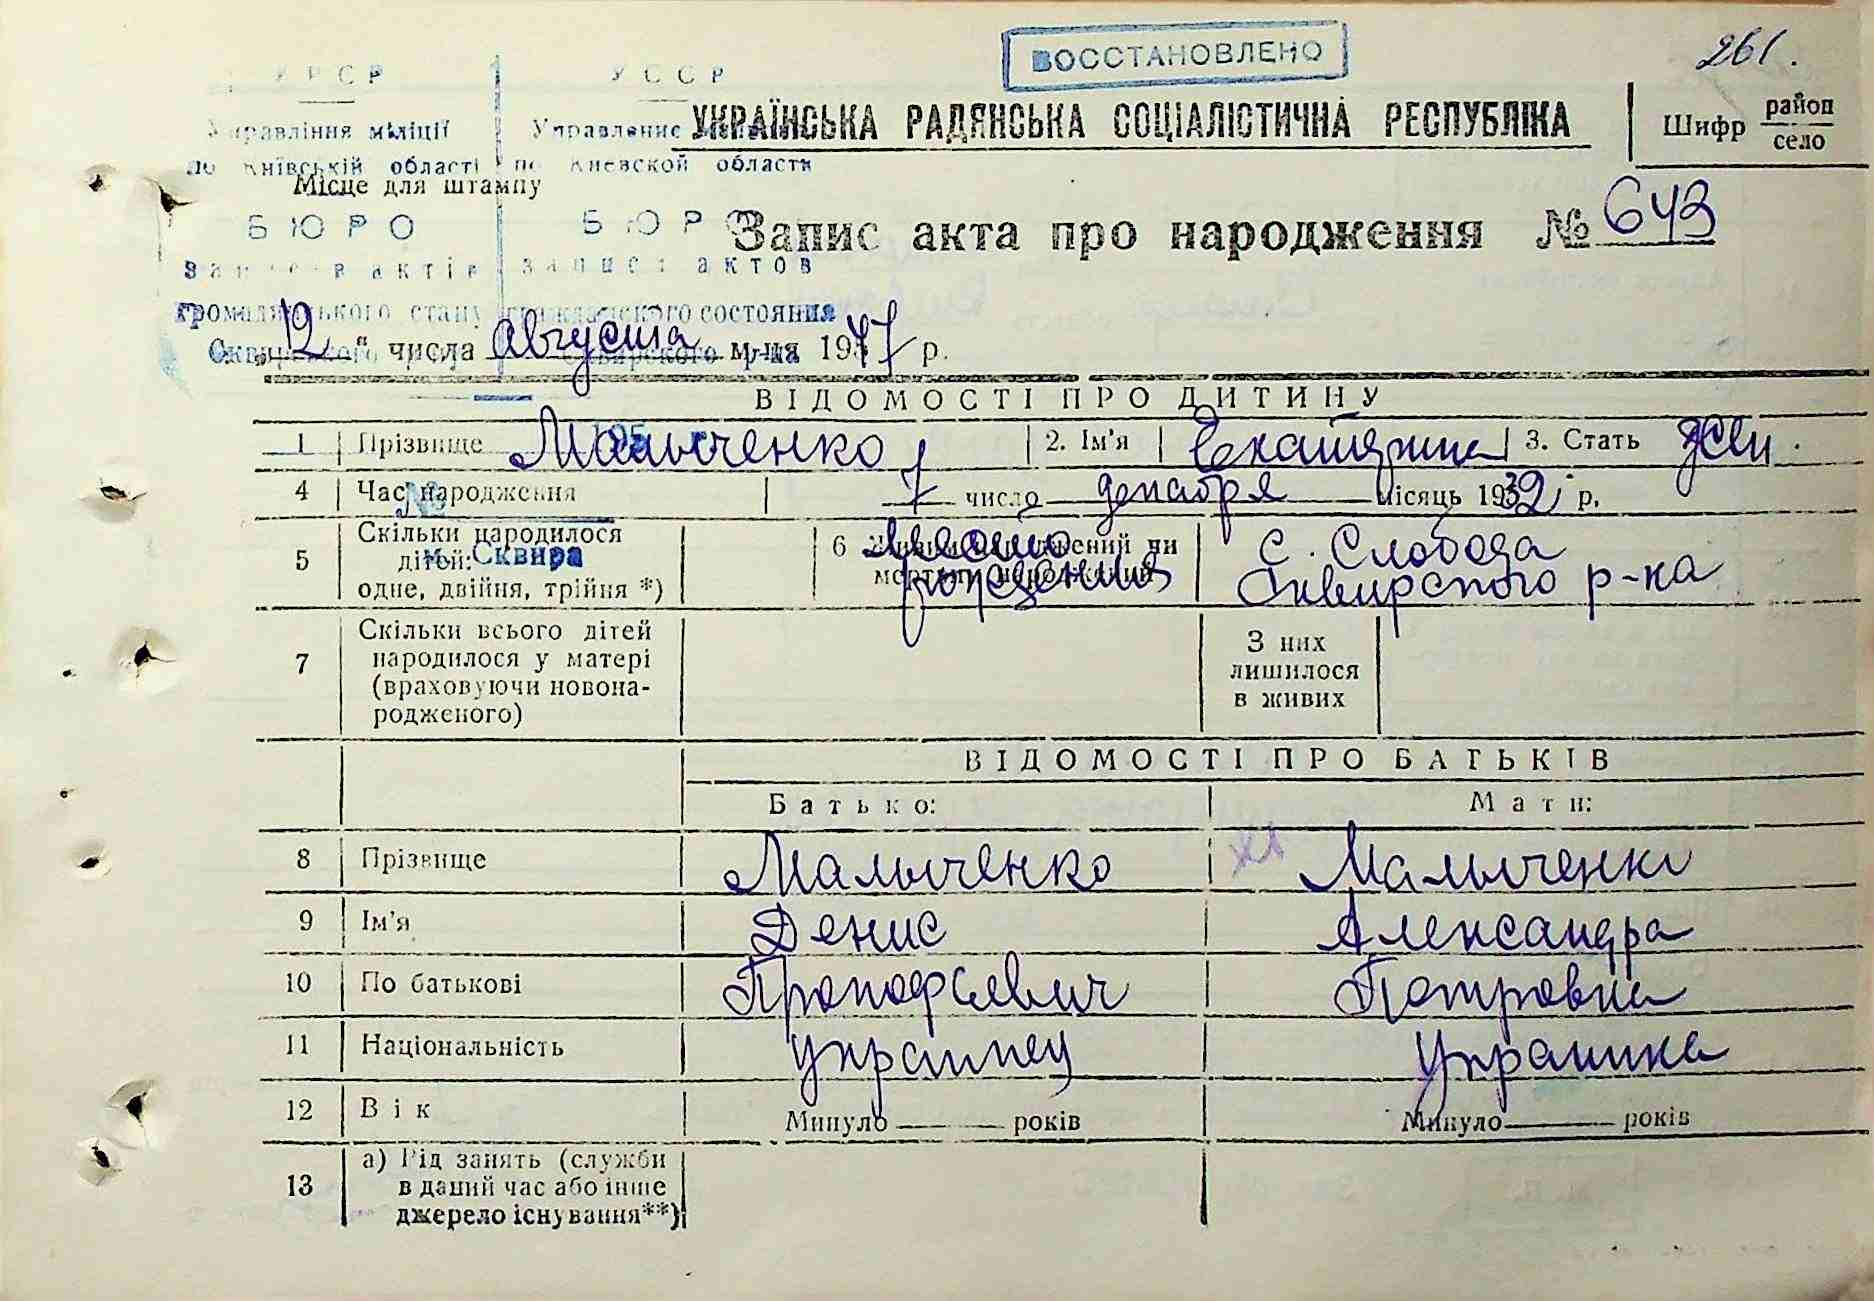 ВОССТАНОВЛЕНО
261.
УРСР УССР
Управління міліції Управление
по Київській області по Киевской области
УКРАЇНСЬКА РАДЯНСЬКА СОЦІАЛІСТИЧНА РЕСПУБЛІКА
Шифр район
село
Місце для штампу
БЮРО БЮРО
Запис акта про народження № 643
записів актів записи актов
громадянського стану гражданского состояния
Сквирського р-ну Сквирского р-на
"12" числа августа м-ця 1977 р.
ВІДОМОСТІ ПРО ДИТИНУ
195
1 Прізвище Мальченко 2. Ім'я Екатерина 3. Стать жен.
4 Час народження 7 число декабря місяць 1932 р.
№
м. Сквира
5 Скільки народилося дітей: одне, двійня, трійня *)
6 Живим народжений чи мертвим народжений
Место рождения
с. Слобода
Сквирского р-на
7 Скільки всього дітей народилося у матері (враховуючи новонародженого)
З них лишилося в живих
ВІДОМОСТІ ПРО БАТЬКІВ
Батько: Мати:
8 Прізвище Мальченко Мальченко
9 Ім'я Денис Александра
10 По батькові Прокофьевич Петровна
11 Національність украинец украинка
12 Вік Минуло років Минуло років
13 а) Рід занять (служби
в даний час або інше
джерело існування**)